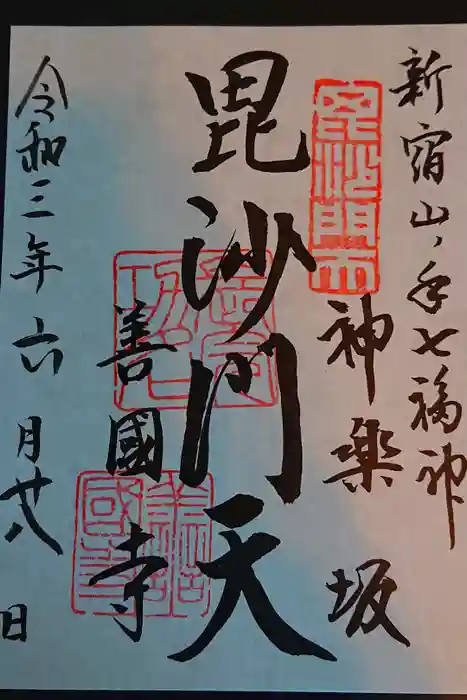 新宿山ノ手七福神
神楽坂
毘沙門天
善國寺
令和三年六月廿八日